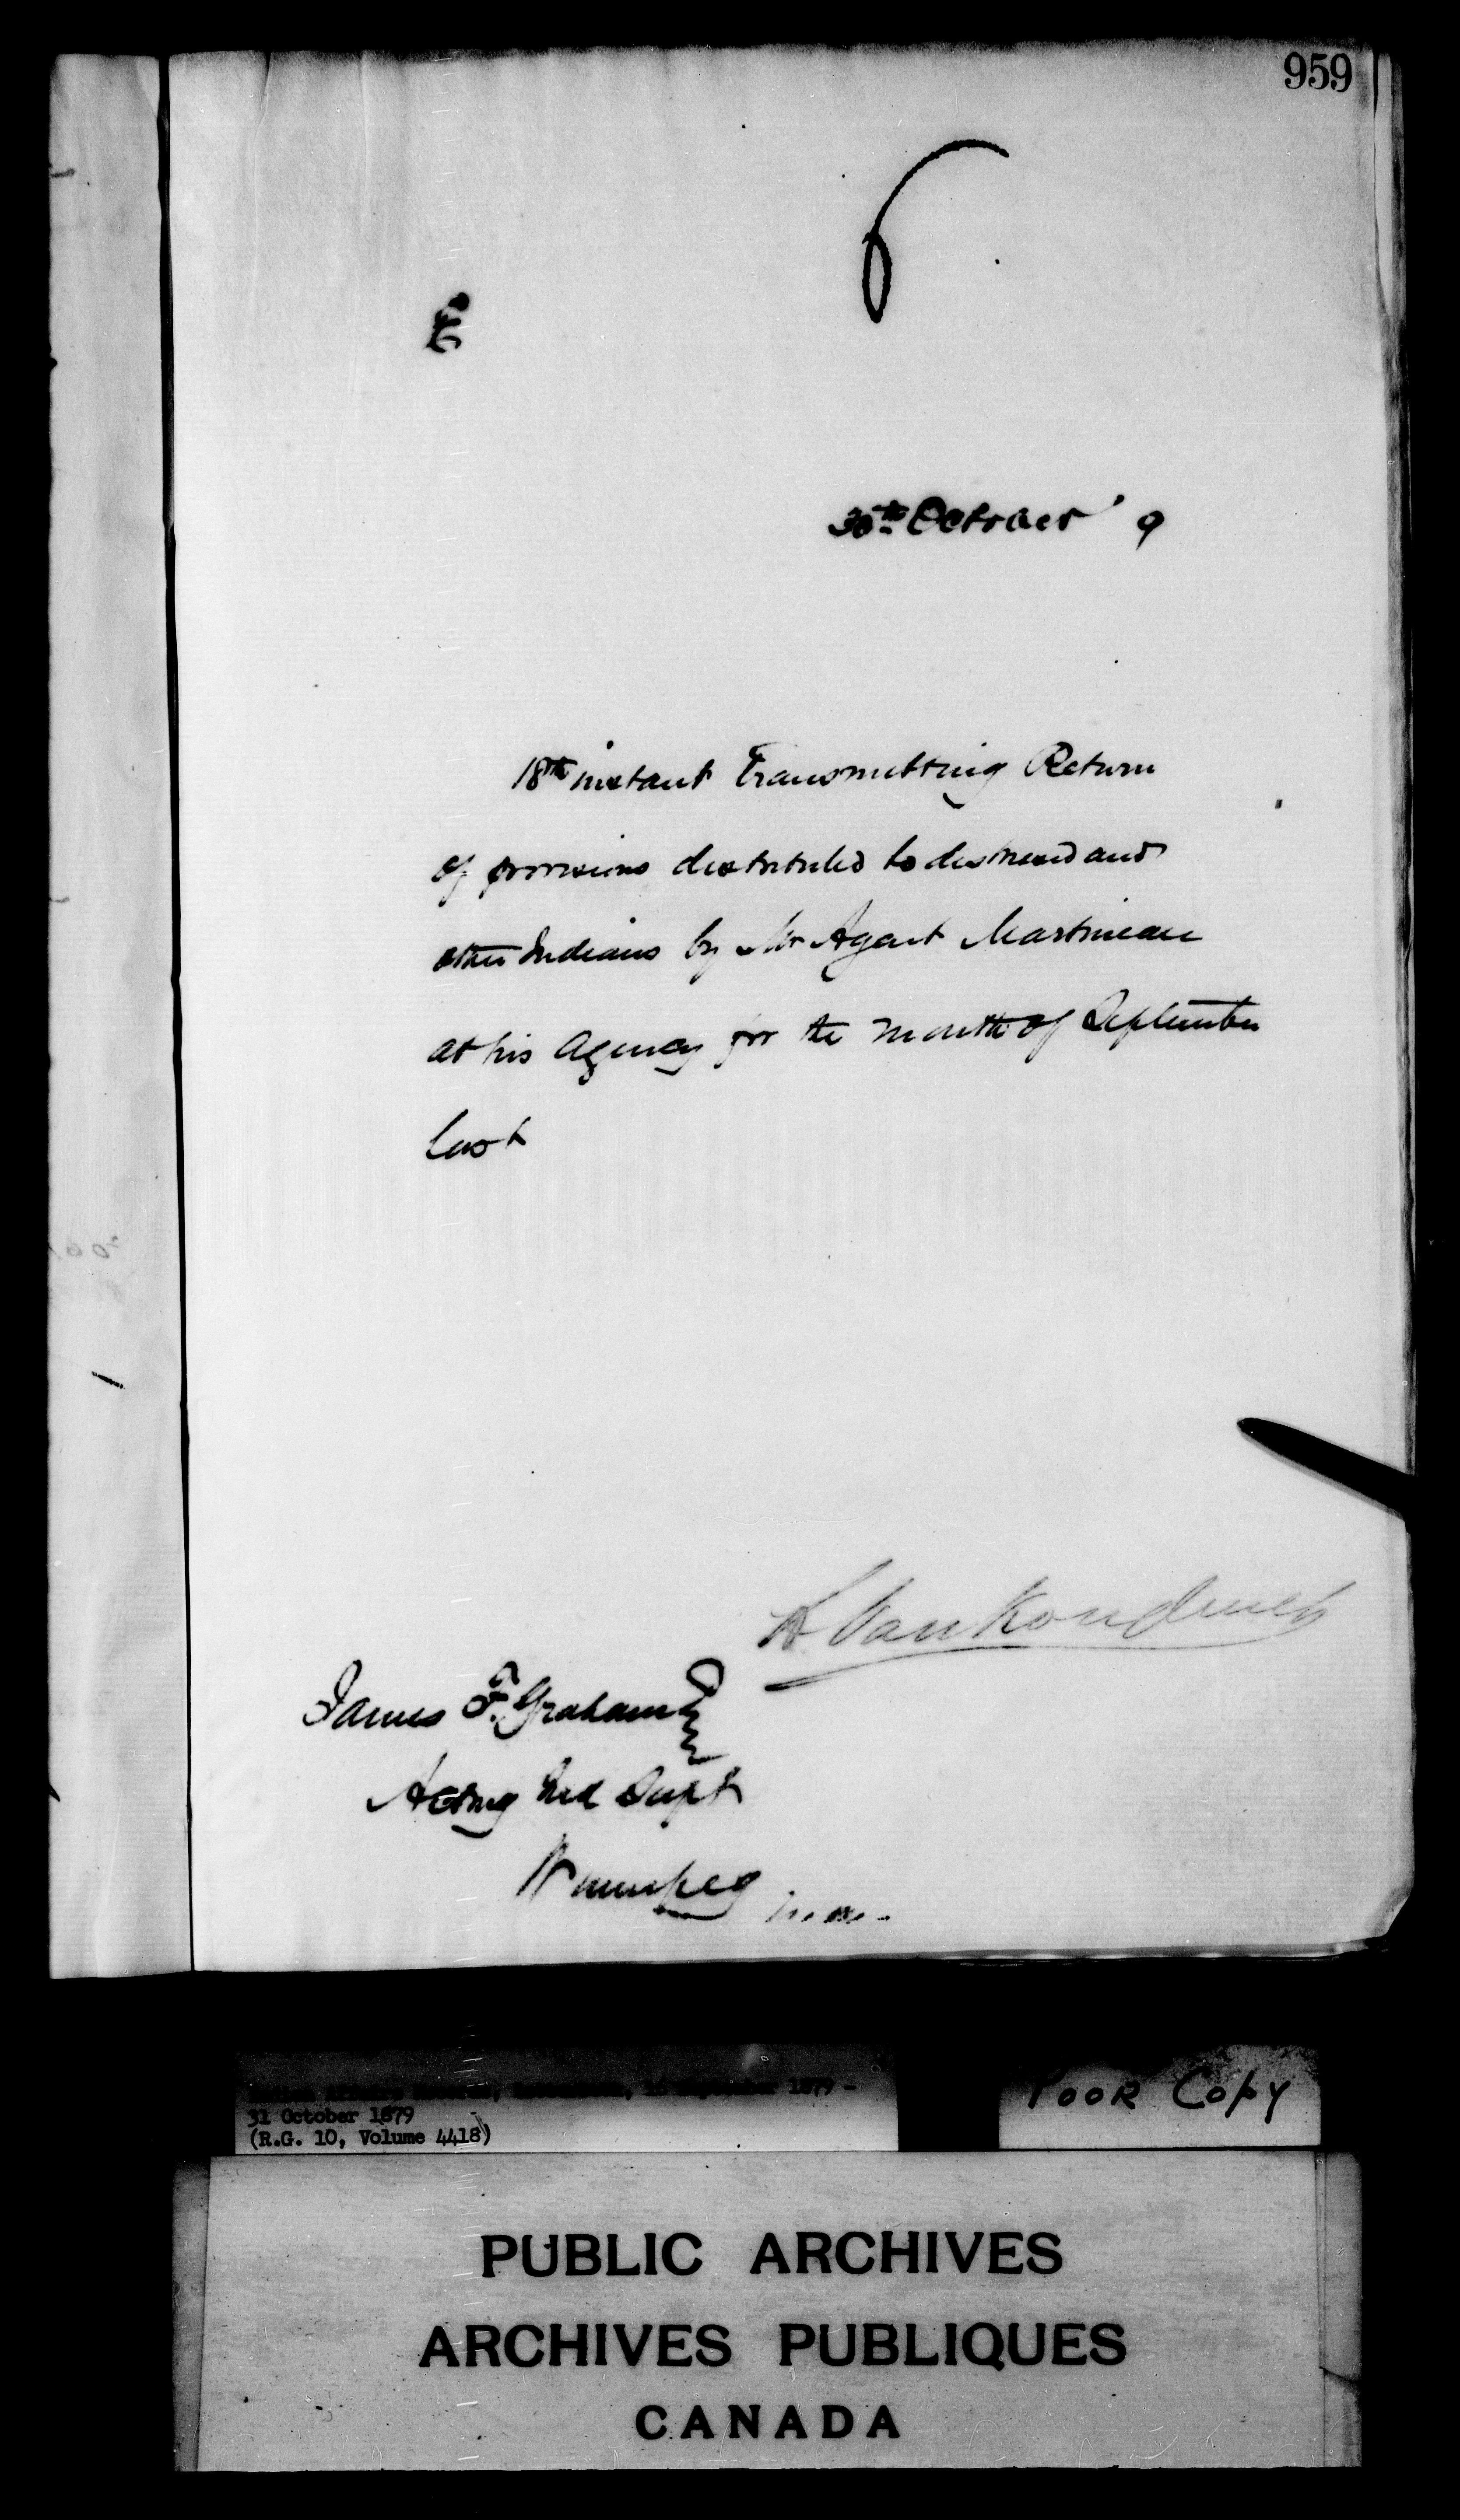 959
30th October 9
18th instant Transmitting Return
of provisions distributed to destressed and
other Indians by Mr Agent Martineau
at his Agency for the month of September
last
L VanKoughnet
James F. Graham Esq
Acting Ind Supt
Winnipeg
September 1879 -
31 October 1879
(R.G. 10, Volume 4418)
POOR COPY
PUBLIC ARCHIVES
ARCHIVES PUBLIQUES
CANADA